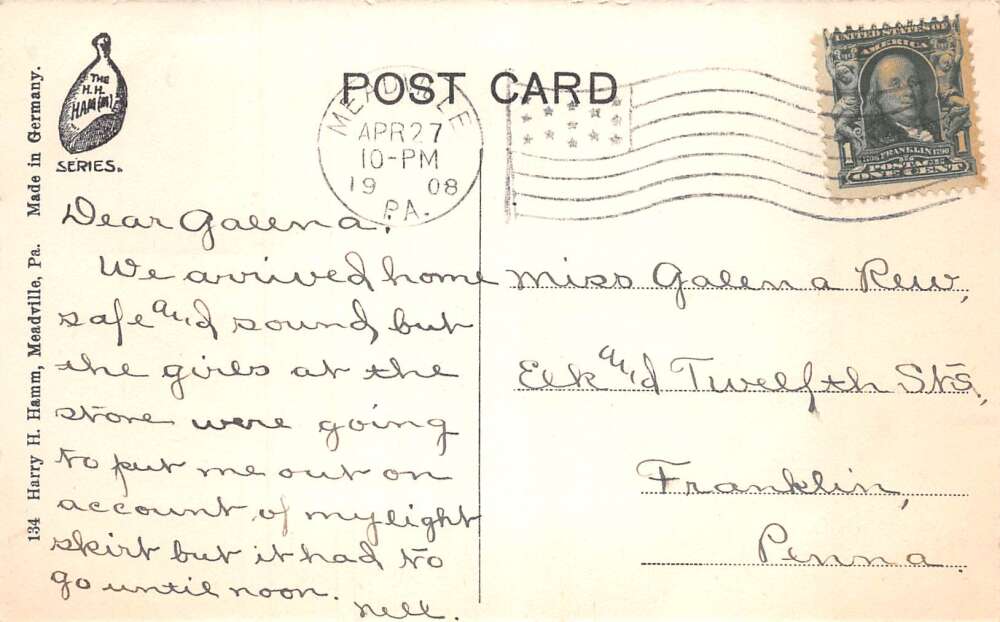 134 Harry H. Hamm, Meadville, Pa. Made in Germany.
THE
H.H.
HAMM
SERIES.
POST CARD
MEADVILLE
APR 27
10-PM
19 08
PA.
UNITED STATES OF
AMERICA
1 1
FRANKLIN
POSTAGE
ONE CENT
Dear Galena,
We arrived home
safe and sound, but
the girls at the
store were going
to put me out on
account of my light
skirt but it had to
go until noon.
Nell.
Miss Galena Rew,
Elk and Twelfth Sts,
Franklin,
Penna.